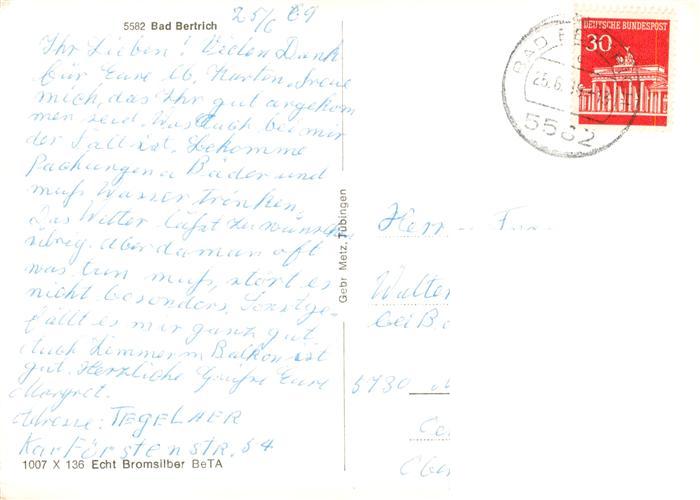 25/6 69
5582 Bad Bertrich
Ihr Lieben! Vielen Dank
für Eure lb. Karten. Freue
mich, das Ihr gut angekom
men seid. Was Auch bei mir
der Fall ist. Bekomme
Packungen Bäder und
muß Wasser trinken.
Das Wetter läßt zu wünschen
übrig. Aber da man oft
was tun muß, stört es
nicht besonders. Sonst ge-
fällt es mir ganz gut.
Auch Zimmer m Balkon ist
gut. Herzliche Grüße Eure
Margret.
Adresse: TEGELAER
KurFürstenSTR. 54
1007 X 136 Echt Bromsilber BeTA
Gebr Metz, Tübingen
DEUTSCHE BUNDESPOST
30
BAD
25.6.
5582
Herr
Walter
bei